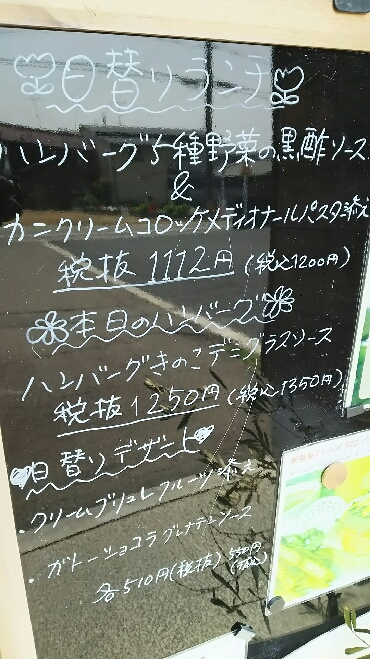 日替りランチ
ハンバーグ5種野菜の黒酢ソース
&
カニクリームコロッケメディオナールパスタ添え
税抜1112円(税込1200円)
本日のハンバーグ
ハンバーグきのこデミグラスソース
税抜1250円(税込1350円)
日替りデザート
・クリームブリュレフルーツ添え
・ガトーショコラグレナデンソース
各510円(税抜)550円(税込)